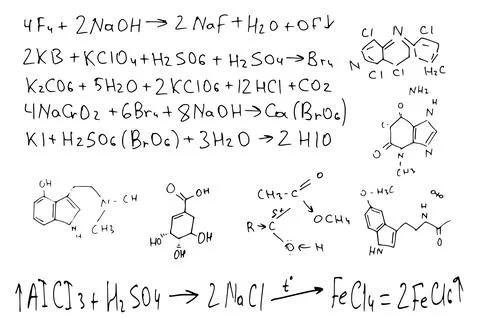 4F₄ + 2NaOH → 2Naf + H₂O + OF↓
2KB + KClO₄ + H₂SO₆ + H₂SO₄ → Br₄
K₂CO₆ + 5H₂O + 2KClO₆ + 12HCl + CO₂
4NaCrO₂ + 6Br₄ + 8NaOH → Ca(BrO₆)
KI + H₂SO₆(BrO₆) + 3H₂O → 2HIO
Cl N Cl
N Cl Cl H₂C
NH₂
O H N
O N N
CH₃
OH
N - CH
CH₃
N H
O OH
HO OH
OH
CH₃-C O
R → C OCH₄
O ← H
O - H₃C %
H N
N H O
↑AlCl₃ + H₂SO₄ → 2NaCl t° → FeCl₄ = 2FeCl₆↑